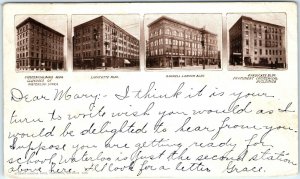 LAFAYETTE BLDG.
RUSSELL LAMSON BLDG.
SYNDICATE BLDG.
Dear Mary:- I think it is your
turn to write wish you would as I
would be delighted to hear from you.
Suppose you are getting ready for
school. Waterloo is just the second station
above here. I'll look for a letter Grace.